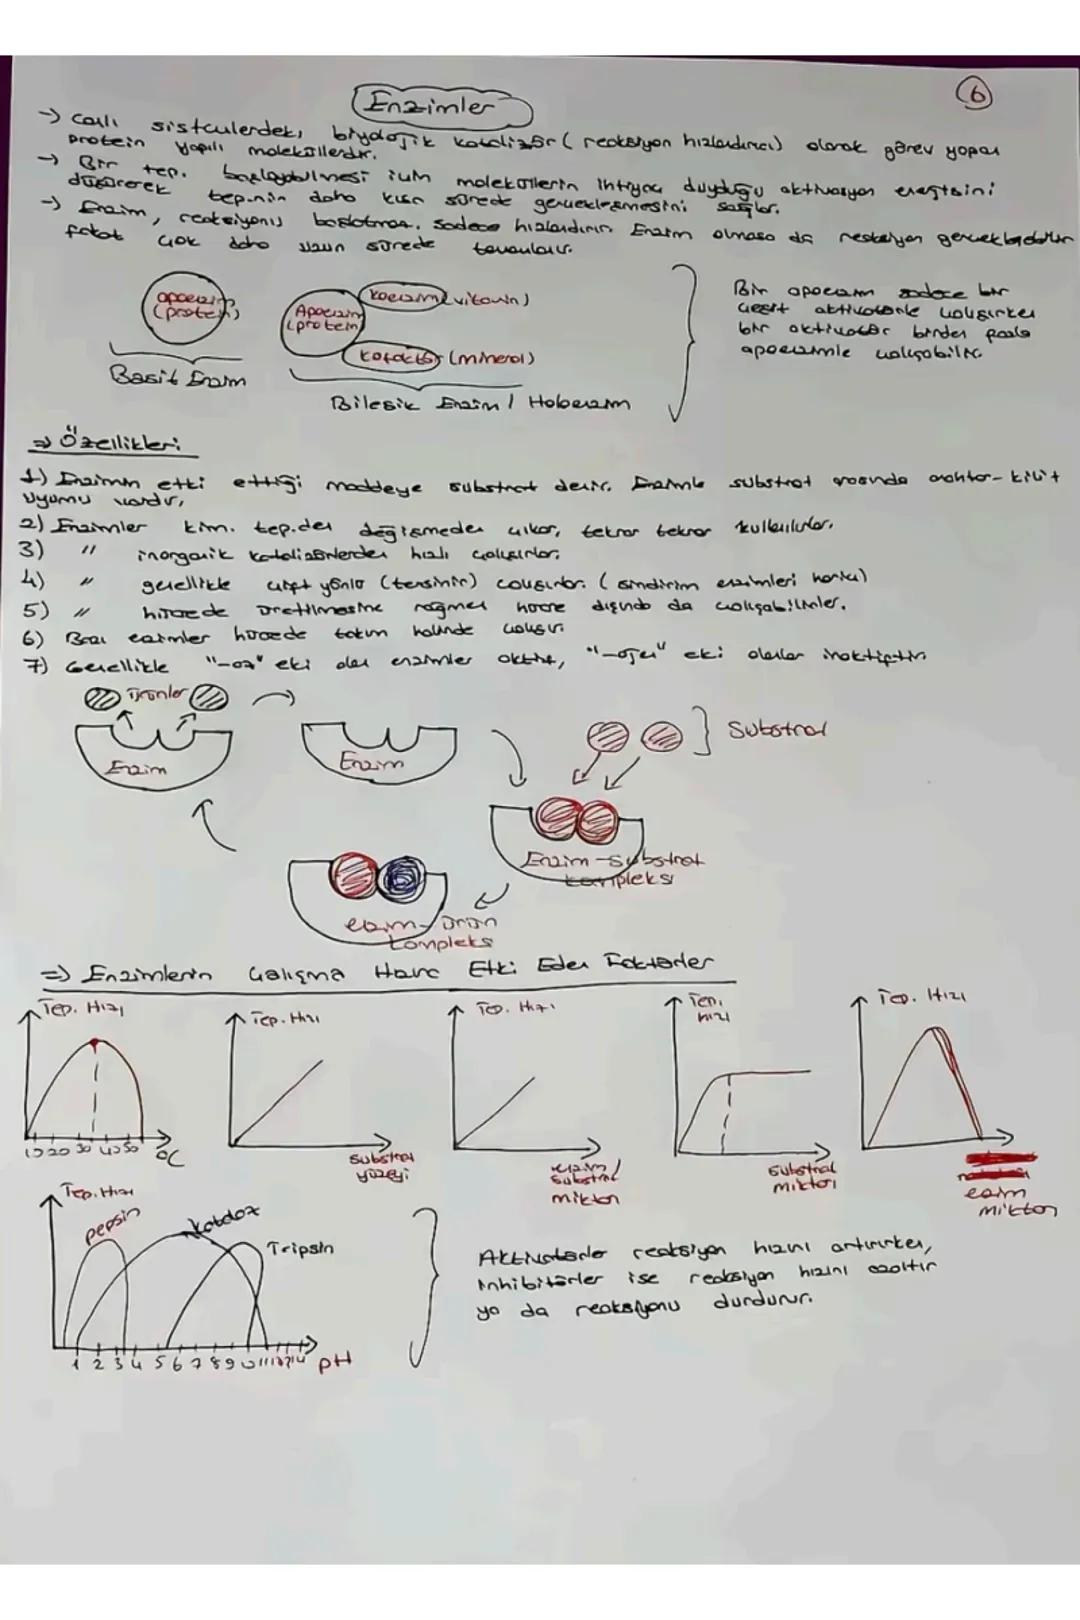 Enzimler
6
→ Canlı sistemlerdeki biyolojik katalizör (reaksiyon hızlandırıcı) olarak görev yapan
protein yapılı moleküllerdir.
→ Bir tep. başlayabilmesi için moleküllerin ihtiyaç duyduğu aktivasyon enerjisini
düşürerek tep.nin daha kısa sürede gerçekleşmesini sağlar.
→ Enzim, reaksiyonu başlatmaz, sadece hızlandırır. Enzim olmasa da reaksiyon gerçekleşebilir
fakat çok daha uzun sürede tamamlanır.
apoenzim
(protein)
Basit Enzim
Apoenzim
(protein)
Koenzim (vitamin)
Kofaktör (mineral)
Bileşik Enzim / Holoenzim
Bir apoenzim sadece bir
çeşit aktivatörle çalışırken
bir aktivatör birden fazla
apoenzimle çalışabilir.
⇒ Özellikleri
1) Enzimin etki ettiği maddeye substrat denir. Enzimle substrat arasında anahtar-kilit
uyumu vardır.
2) Enzimler kim. tep.den değişmeden çıkar, tekrar tekrar kullanılırlar.
3) " inorganik katalizörlerden hızlı çalışırlar.
4) " genellikle çift yönlü (tersinir) çalışırlar. (sindirim enzimleri hariç)
5) " hücrede üretilmesine rağmen hücre dışında da çalışabilirler.
6) Bazı enzimler hücrede takım halinde çalışır.
7) Genellikle "-az" eki alan enzimler aktif, "-ojen" eki alanlar inaktiftir.
Ürünler
Enzim
Enzim
Substrat
Enzim-Substrat
kompleksi
enzim-ürün
kompleks
⇒ Enzimlerin Çalışma Hızına Etki Eden Faktörler
Tep. Hızı
10 20 30 40 50 °C
Tep. Hızı
Substrat
yüzeyi
Tep. Hızı
enzim /
substrat
miktarı
Tep.
hızı
Substrat
miktarı
Tep. Hızı
enzim
miktarı
Tep. Hızı
pepsin
Katalaz
Tripsin
1 2 3 4 5 6 7 8 9 10 11 12 13 14 pH
Aktivatörler reaksiyon hızını artırırken,
inhibitörler ise reaksiyon hızını azaltır
ya da reaksiyonu durdurur.